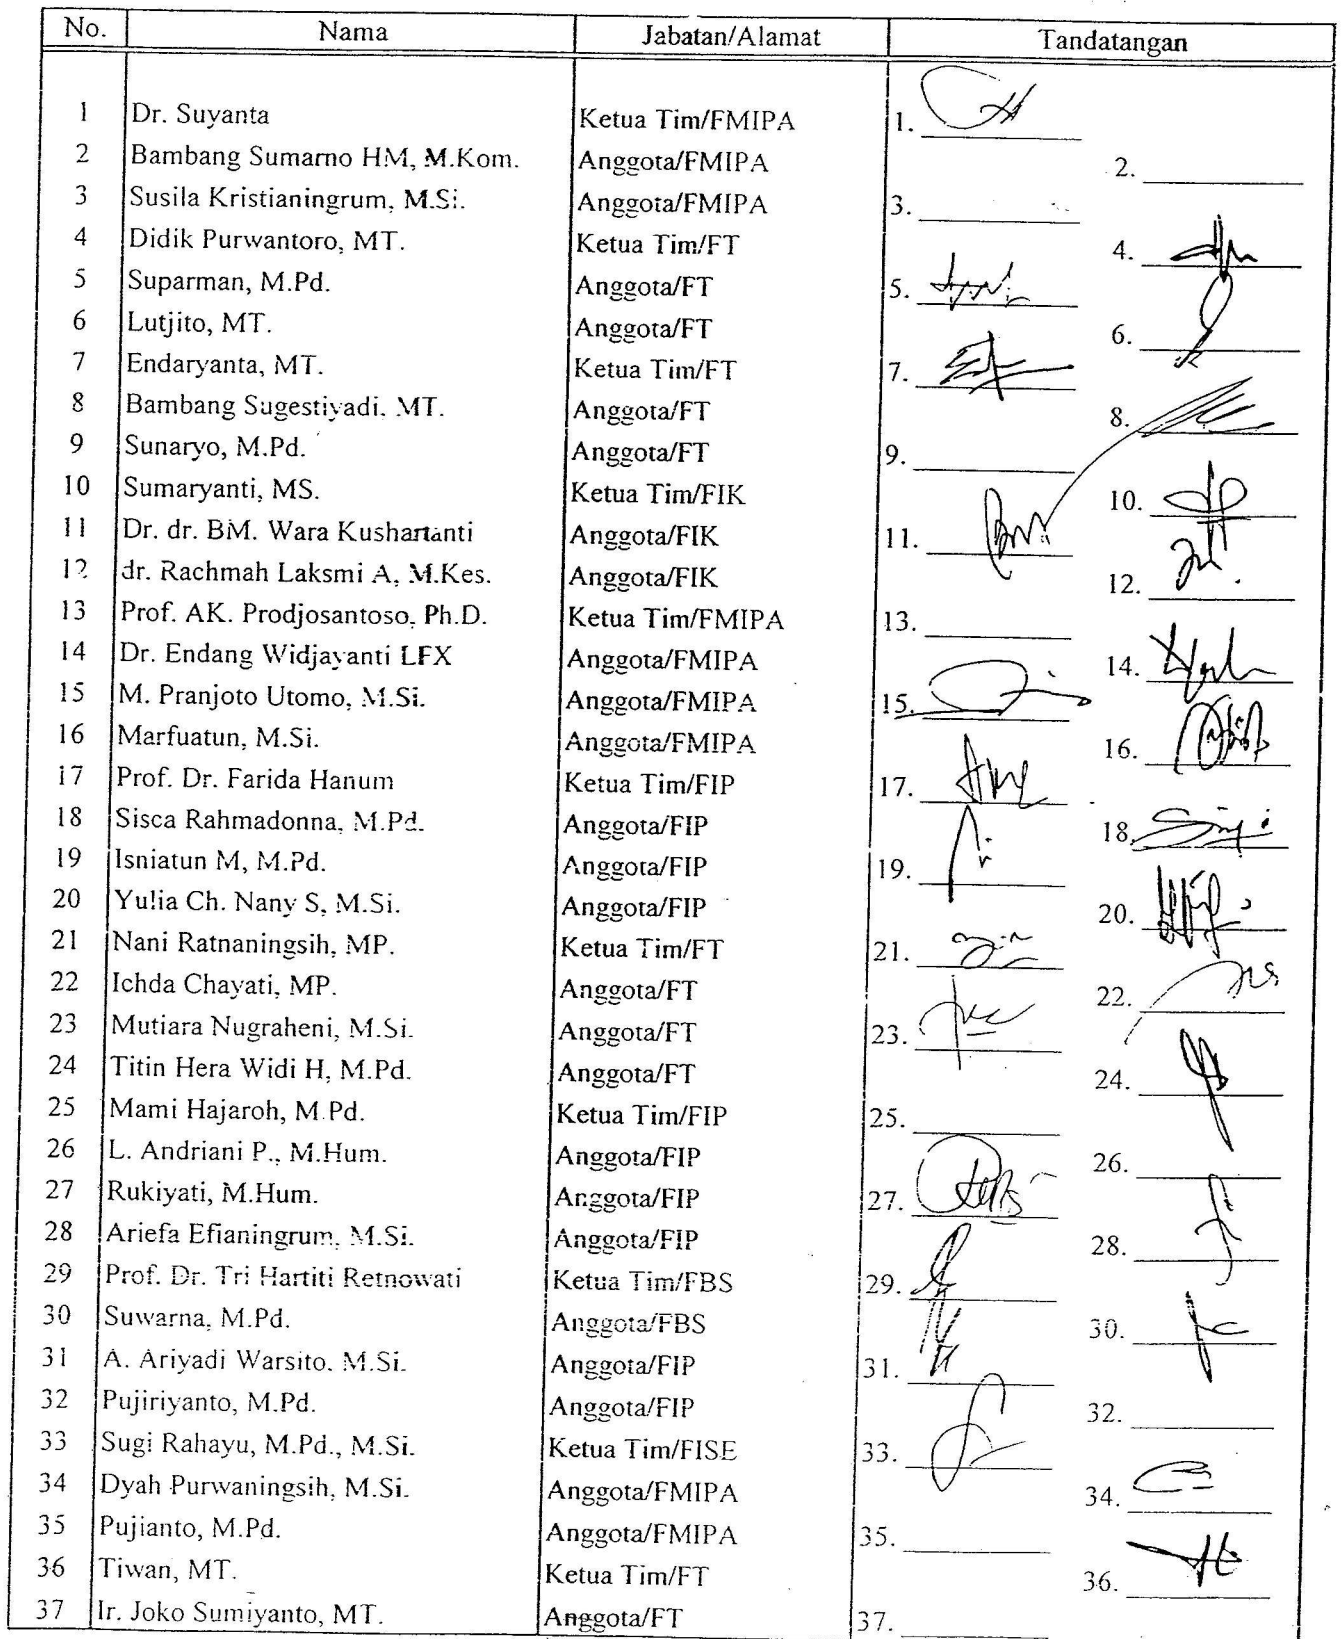 No. Nama Jabatan/Alamat Tandatangan
1 Dr. Suyanta Ketua Tim/FMIPA 1.
2 Bambang Sumarno HM, M.Kom. Anggota/FMIPA 2.
3 Susila Kristianingrum, M.Si. Anggota/FMIPA 3.
4 Didik Purwantoro, MT. Ketua Tim/FT 4.
5 Suparman, M.Pd. Anggota/FT 5.
6 Lutjito, MT. Anggota/FT 6.
7 Endaryanta, MT. Ketua Tim/FT 7.
8 Bambang Sugestiyadi, MT. Anggota/FT 8.
9 Sunaryo, M.Pd. Anggota/FT 9.
10 Sumaryanti, MS. Ketua Tim/FIK 10.
11 Dr. dr. BM. Wara Kushartanti Anggota/FIK 11.
12 dr. Rachmah Laksmi A, M.Kes. Anggota/FIK 12.
13 Prof. AK. Prodjosantoso, Ph.D. Ketua Tim/FMIPA 13.
14 Dr. Endang Widjayanti LFX Anggota/FMIPA 14.
15 M. Pranjoto Utomo, M.Si. Anggota/FMIPA 15.
16 Marfuatun, M.Si. Anggota/FMIPA 16.
17 Prof. Dr. Farida Hanum Ketua Tim/FIP 17.
18 Sisca Rahmadonna, M.Pd. Anggota/FIP 18.
19 Isniatun M, M.Pd. Anggota/FIP 19.
20 Yulia Ch. Nany S, M.Si. Anggota/FIP 20.
21 Nani Ratnaningsih, MP. Ketua Tim/FT 21.
22 Ichda Chayati, MP. Anggota/FT 22.
23 Mutiara Nugraheni, M.Si. Anggota/FT 23.
24 Titin Hera Widi H, M.Pd. Anggota/FT 24.
25 Mami Hajaroh, M.Pd. Ketua Tim/FIP 25.
26 L. Andriani P., M.Hum. Anggota/FIP 26.
27 Rukiyati, M.Hum. Anggota/FIP 27.
28 Ariefa Efianingrum, M.Si. Anggota/FIP 28.
29 Prof. Dr. Tri Hartiti Retnowati Ketua Tim/FBS 29.
30 Suwarna, M.Pd. Anggota/FBS 30.
31 A. Ariyadi Warsito, M.Si. Anggota/FIP 31.
32 Pujiriyanto, M.Pd. Anggota/FIP 32.
33 Sugi Rahayu, M.Pd., M.Si. Ketua Tim/FISE 33.
34 Dyah Purwaningsih, M.Si. Anggota/FMIPA 34.
35 Pujianto, M.Pd. Anggota/FMIPA 35.
36 Tiwan, MT. Ketua Tim/FT 36.
37 Ir. Joko Sumiyanto, MT. Anggota/FT 37.